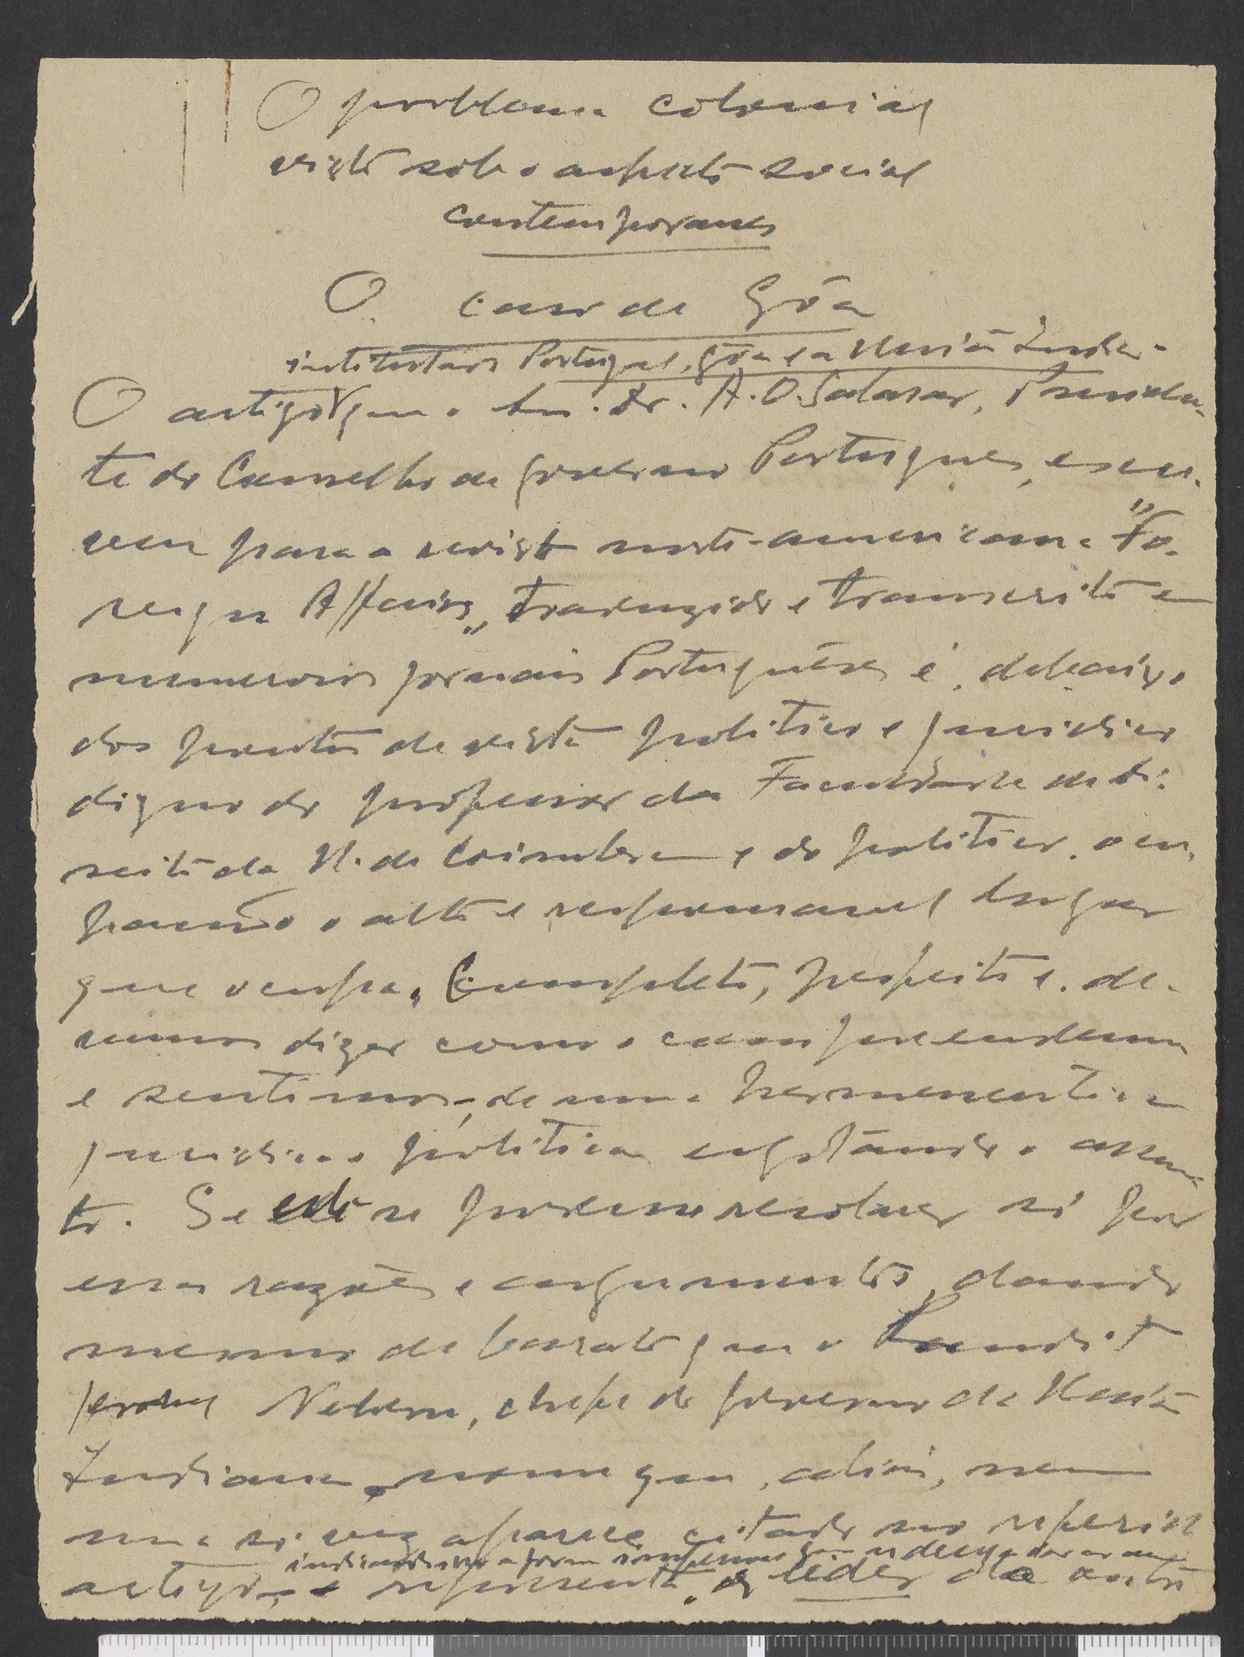 O problema colonial
visto sob o aspecto social
contemporaneo
O caso de Gôa
intitulado Portugal, Gôa e a União India-
O artigo que o Snr. Dr. A. O. Salazar, Presiden-
te do Conselho de governo Portugues, escre-
veu para a revista norte-americana "Fo-
reign Affairs" traduzido e transcrito em
numerosos jornais Portuguêses é, debaixo
dos pontos de vista politico e juridico
digno do professor da Faculdade de Di-
reito da U. de Coimbra e do politico, ocu-
pando o alto e responsavel lugar
que ocupa. Completo, perfeito e, de-
vemos dizer como o compreendemos
e sentimos, de uma hermeneutica
juridica e politica esgotando o assun-
to. Se ele se podesse resolver só por
essas razões e argumentos, dando
mesmo de barato que o Pandit
Nehru, chefe do governo da União
Indiana, nome que, aliás, nem
uma só vez aparece citado no referido
artigo, representa, o lider da outra